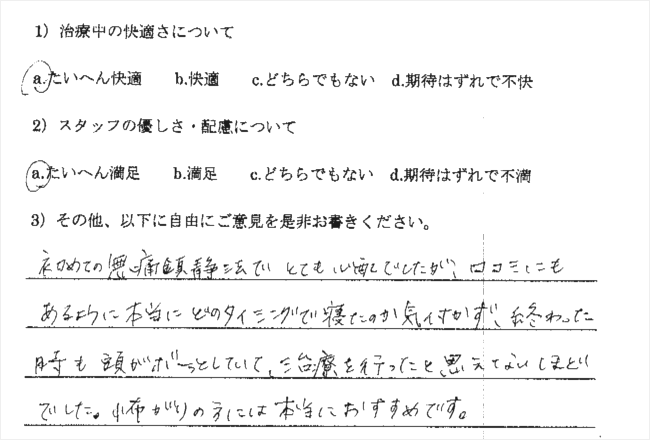 1）治療中の快適さについて
a.たいへん快適　b.快適　c.どちらでもない　d.期待はずれで不快
2）スタッフの優しさ・配慮について
a.たいへん満足　b.満足　c.どちらでもない　d.期待はずれで不満
3）その他、以下に自由にご意見を是非お書きください。
初めての無痛鎮静法で とても心配でしたが、口コミにも
あるように本当に どのタイミングで寝たのか気付かず、終わった
時も 頭がボーっとしていて、治療を行ったと思えてないほど
でした。怖がりの方には本当におすすめです。